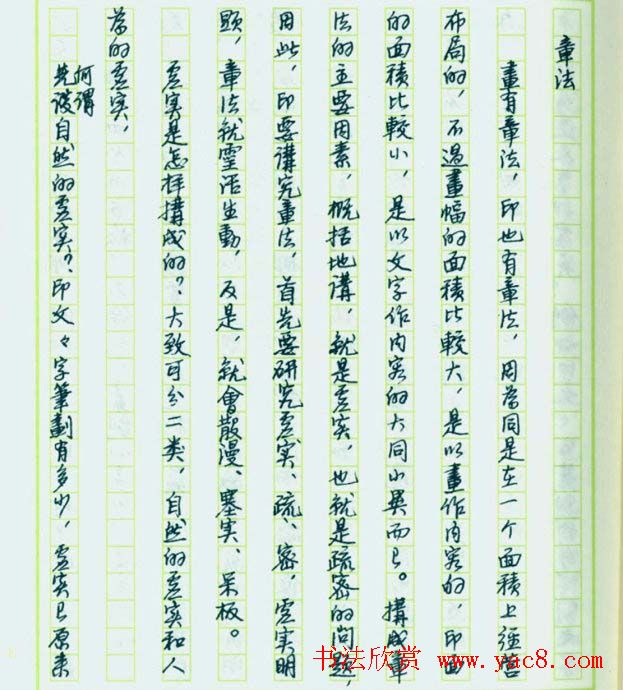 章法
畫有章法，印也有章法，因為同是在一个面積上經營
布局的，不過畫幅的面積比較大，是以畫作內容的，印面
的面積比較小，是以文字作內容的大同小異而已。構成章
法的主要因素，概括地講，就是虛实，也就是疏密的问题，
因此，印要講究章法，首先要研究虛实、疏、密，虛实明
顯，章法就靈活生動，反是，就會散漫、塞实、呆板。
虛实是怎样構成的？大致可分二类，自然的虛实和人
為的虛实，
何謂
先談自然的虛实？印文々字筆劃有多少，虛实已原来
书法欣赏 www.yac8.com